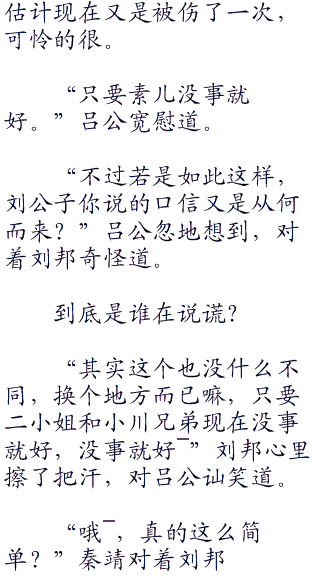 估计现在又是被伤了一次，
可怜的很。
“只要素儿没事就
好。”吕公宽慰道。
“不过若是如此这样，
刘公子你说的口信又是从何
而来？”吕公忽地想到，对
着刘邦奇怪道。
到底是谁在说谎？
“其实这个也没什么不
同，换个地方而已嘛，只要
二小姐和小川兄弟现在没事
就好，没事就好¯”刘邦心里
擦了把汗，对吕公讪笑道。
“哦¯，真的这么简
单？”秦靖对着刘邦